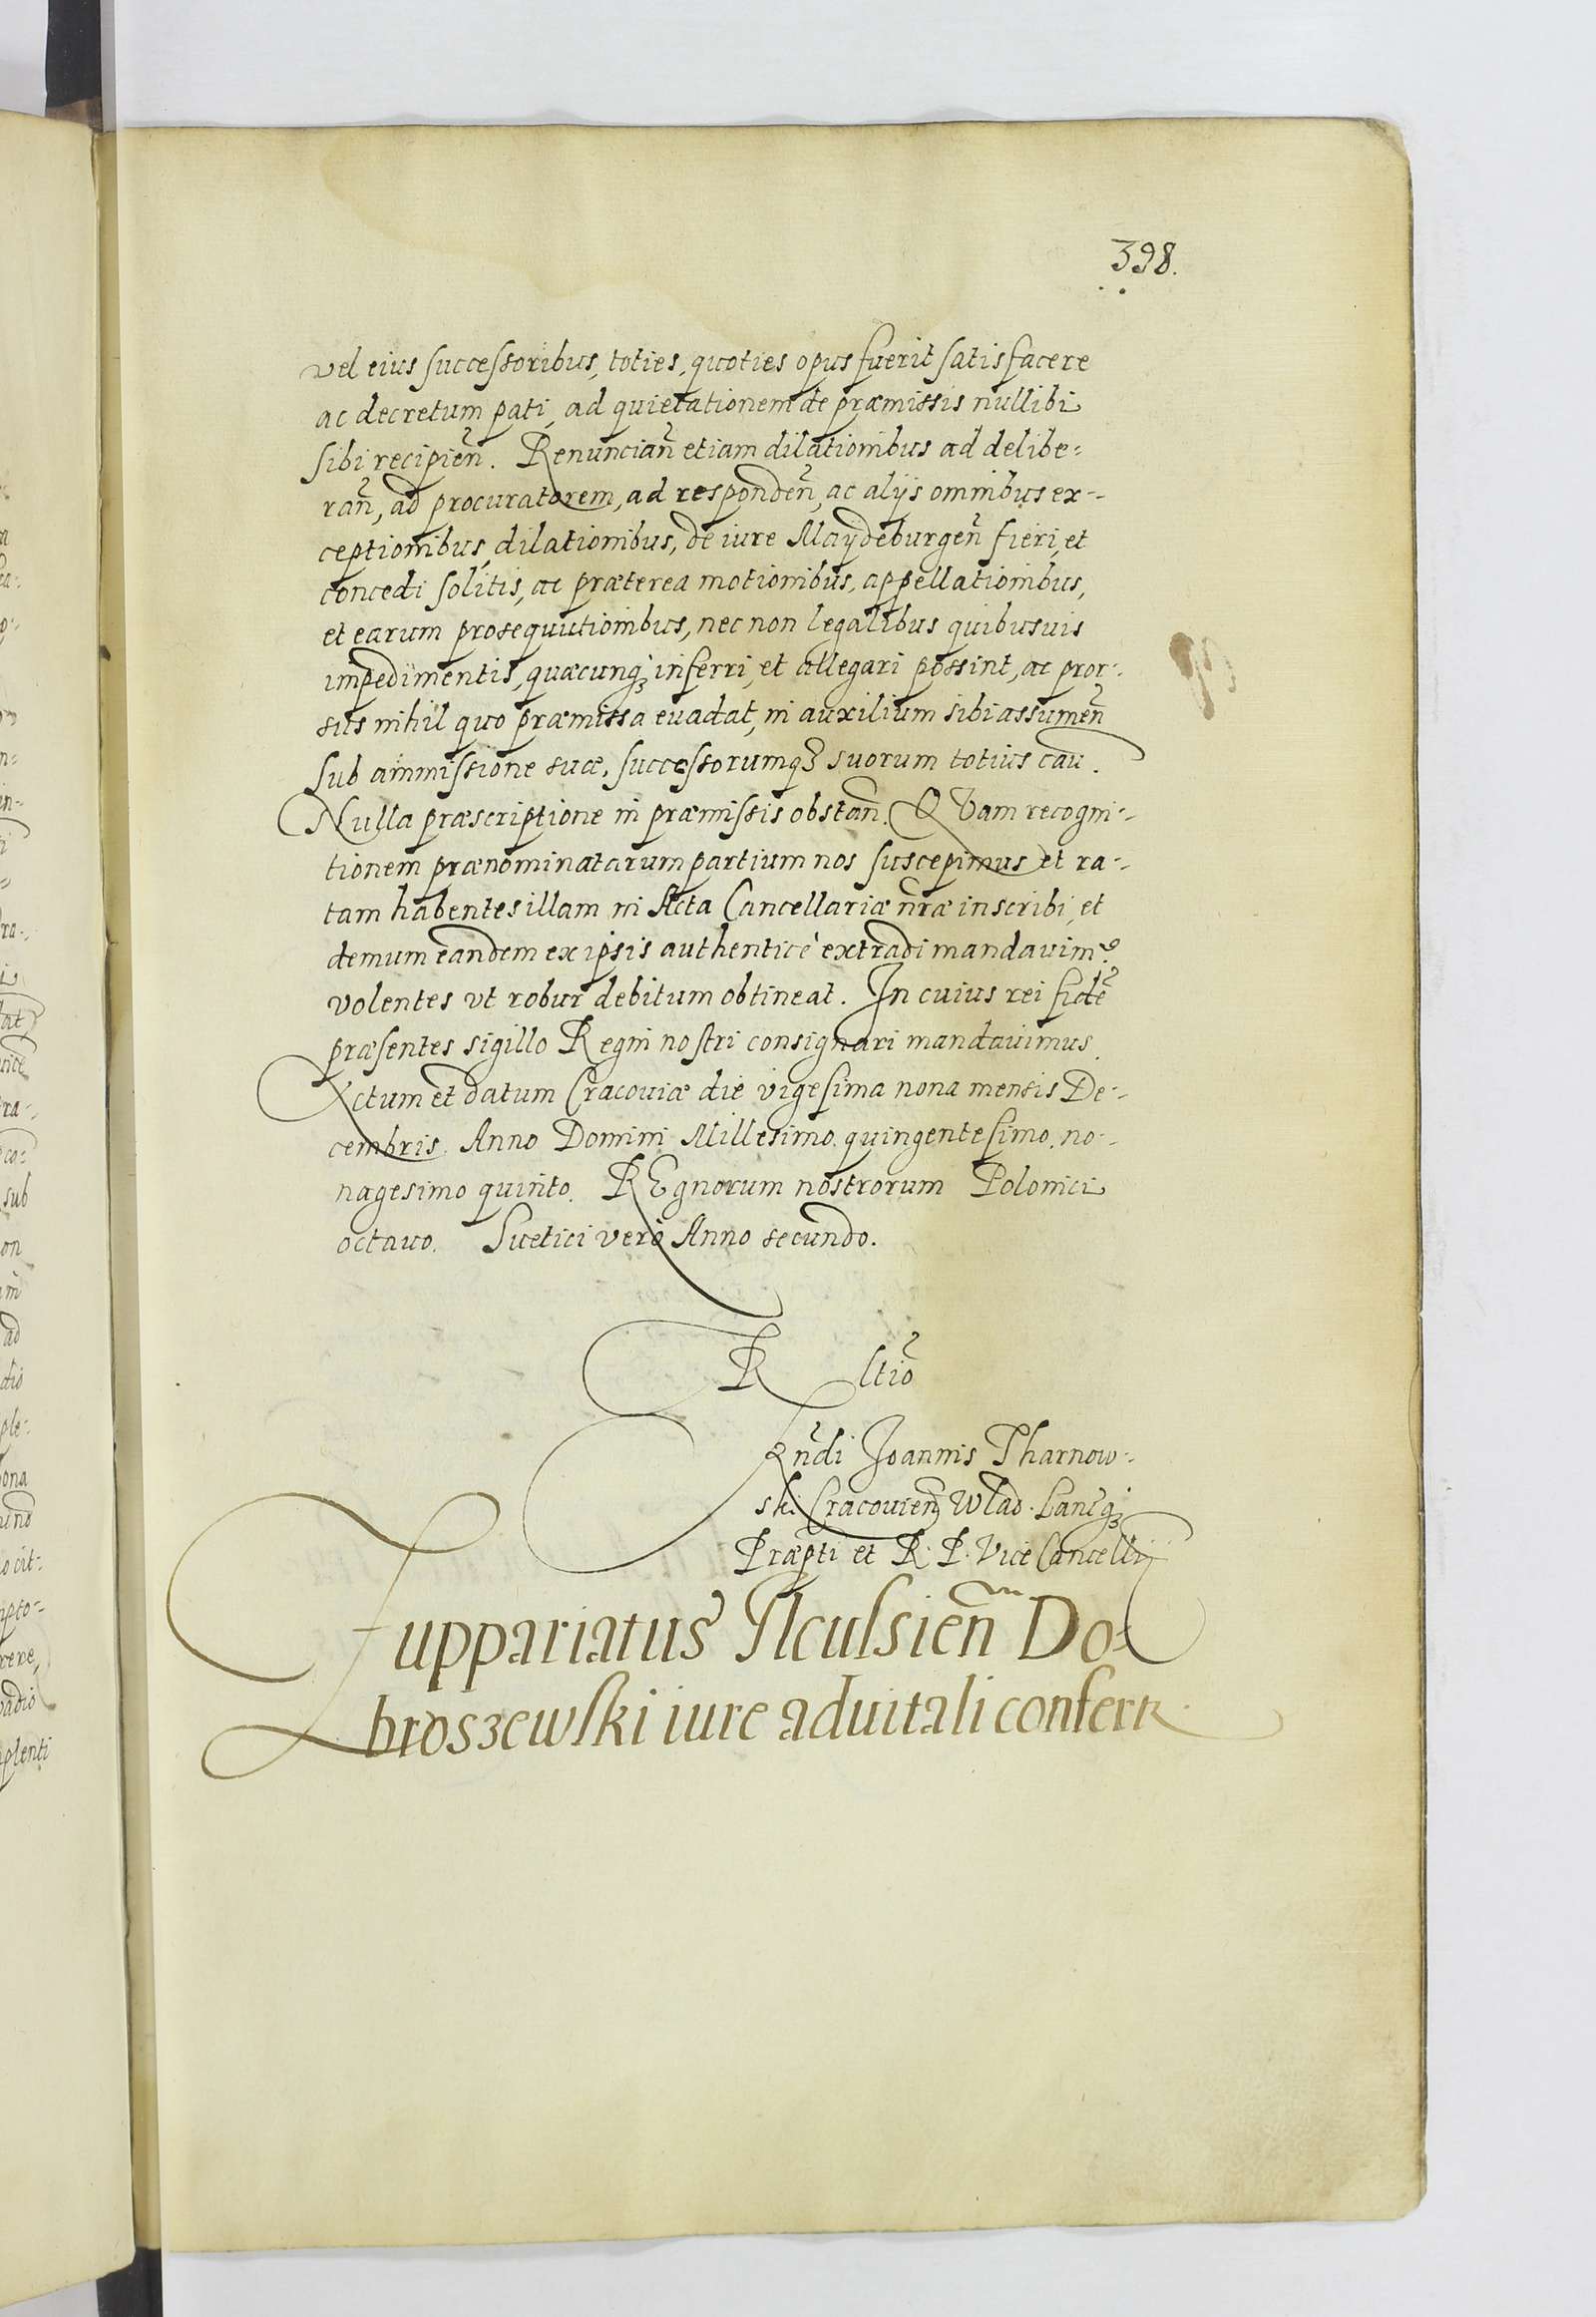 398.
vel eius successoribus, toties, quoties opus fuerit satisfacere
ac decretum pati, ad quietationem de præmissis nullibi
sibi recipień. Renuncian̄ etiam dilationibus ad delibe=
ran̄, ad procuratorem, ad responden̄, ac alijs omnibus ex=
ceptionibus, dilationibus, de iure Maydeburgen̄ fieri, et
concedi solitis, ac præterea motionibus, appellationibus,
et earum prosequutionibus, nec non legalibus quibusuis
impedimentis, quæcunqꝫ inferri, et allegari possint, ac pror=
sus nihil quo præmissa euadat, in auxilium sibi assumen̄
sub ammissione suæ, successorumqꝫ suorum totius cau.
Nulla præscriptione in præmissis obstan̄. QVam recogni=
tionem prænominatarum partium nos suscepimus et ra=
tam habentes illam in Acta Cancellariæ n̄ræ inscribi, et
demum eandem ex ipsis authenticè extradi mandauimꝰ
volentes vt robur debitum obtineat. In cuius rei fidē
præsentes sigillo Regni nostri consignari mandauimus.
Actum et datum Cracouiæ die vigesima nona mensis De=
cembris. Anno Domini Millesimo. quingentesimo. no=
nagesimo quinto. REgnorum nostrorum Polonici
octauo. Suetici verò Anno secundo.
R ltiō
Rn̄di Joannis Tharnow=
ski Cracouien̄ Wlad. Lancqꝫ
Præpti et R. P. Vice Cancellij
Zuppariatus Ilcussien̄ Do=
broszewski iure aduitali confertꝛ.